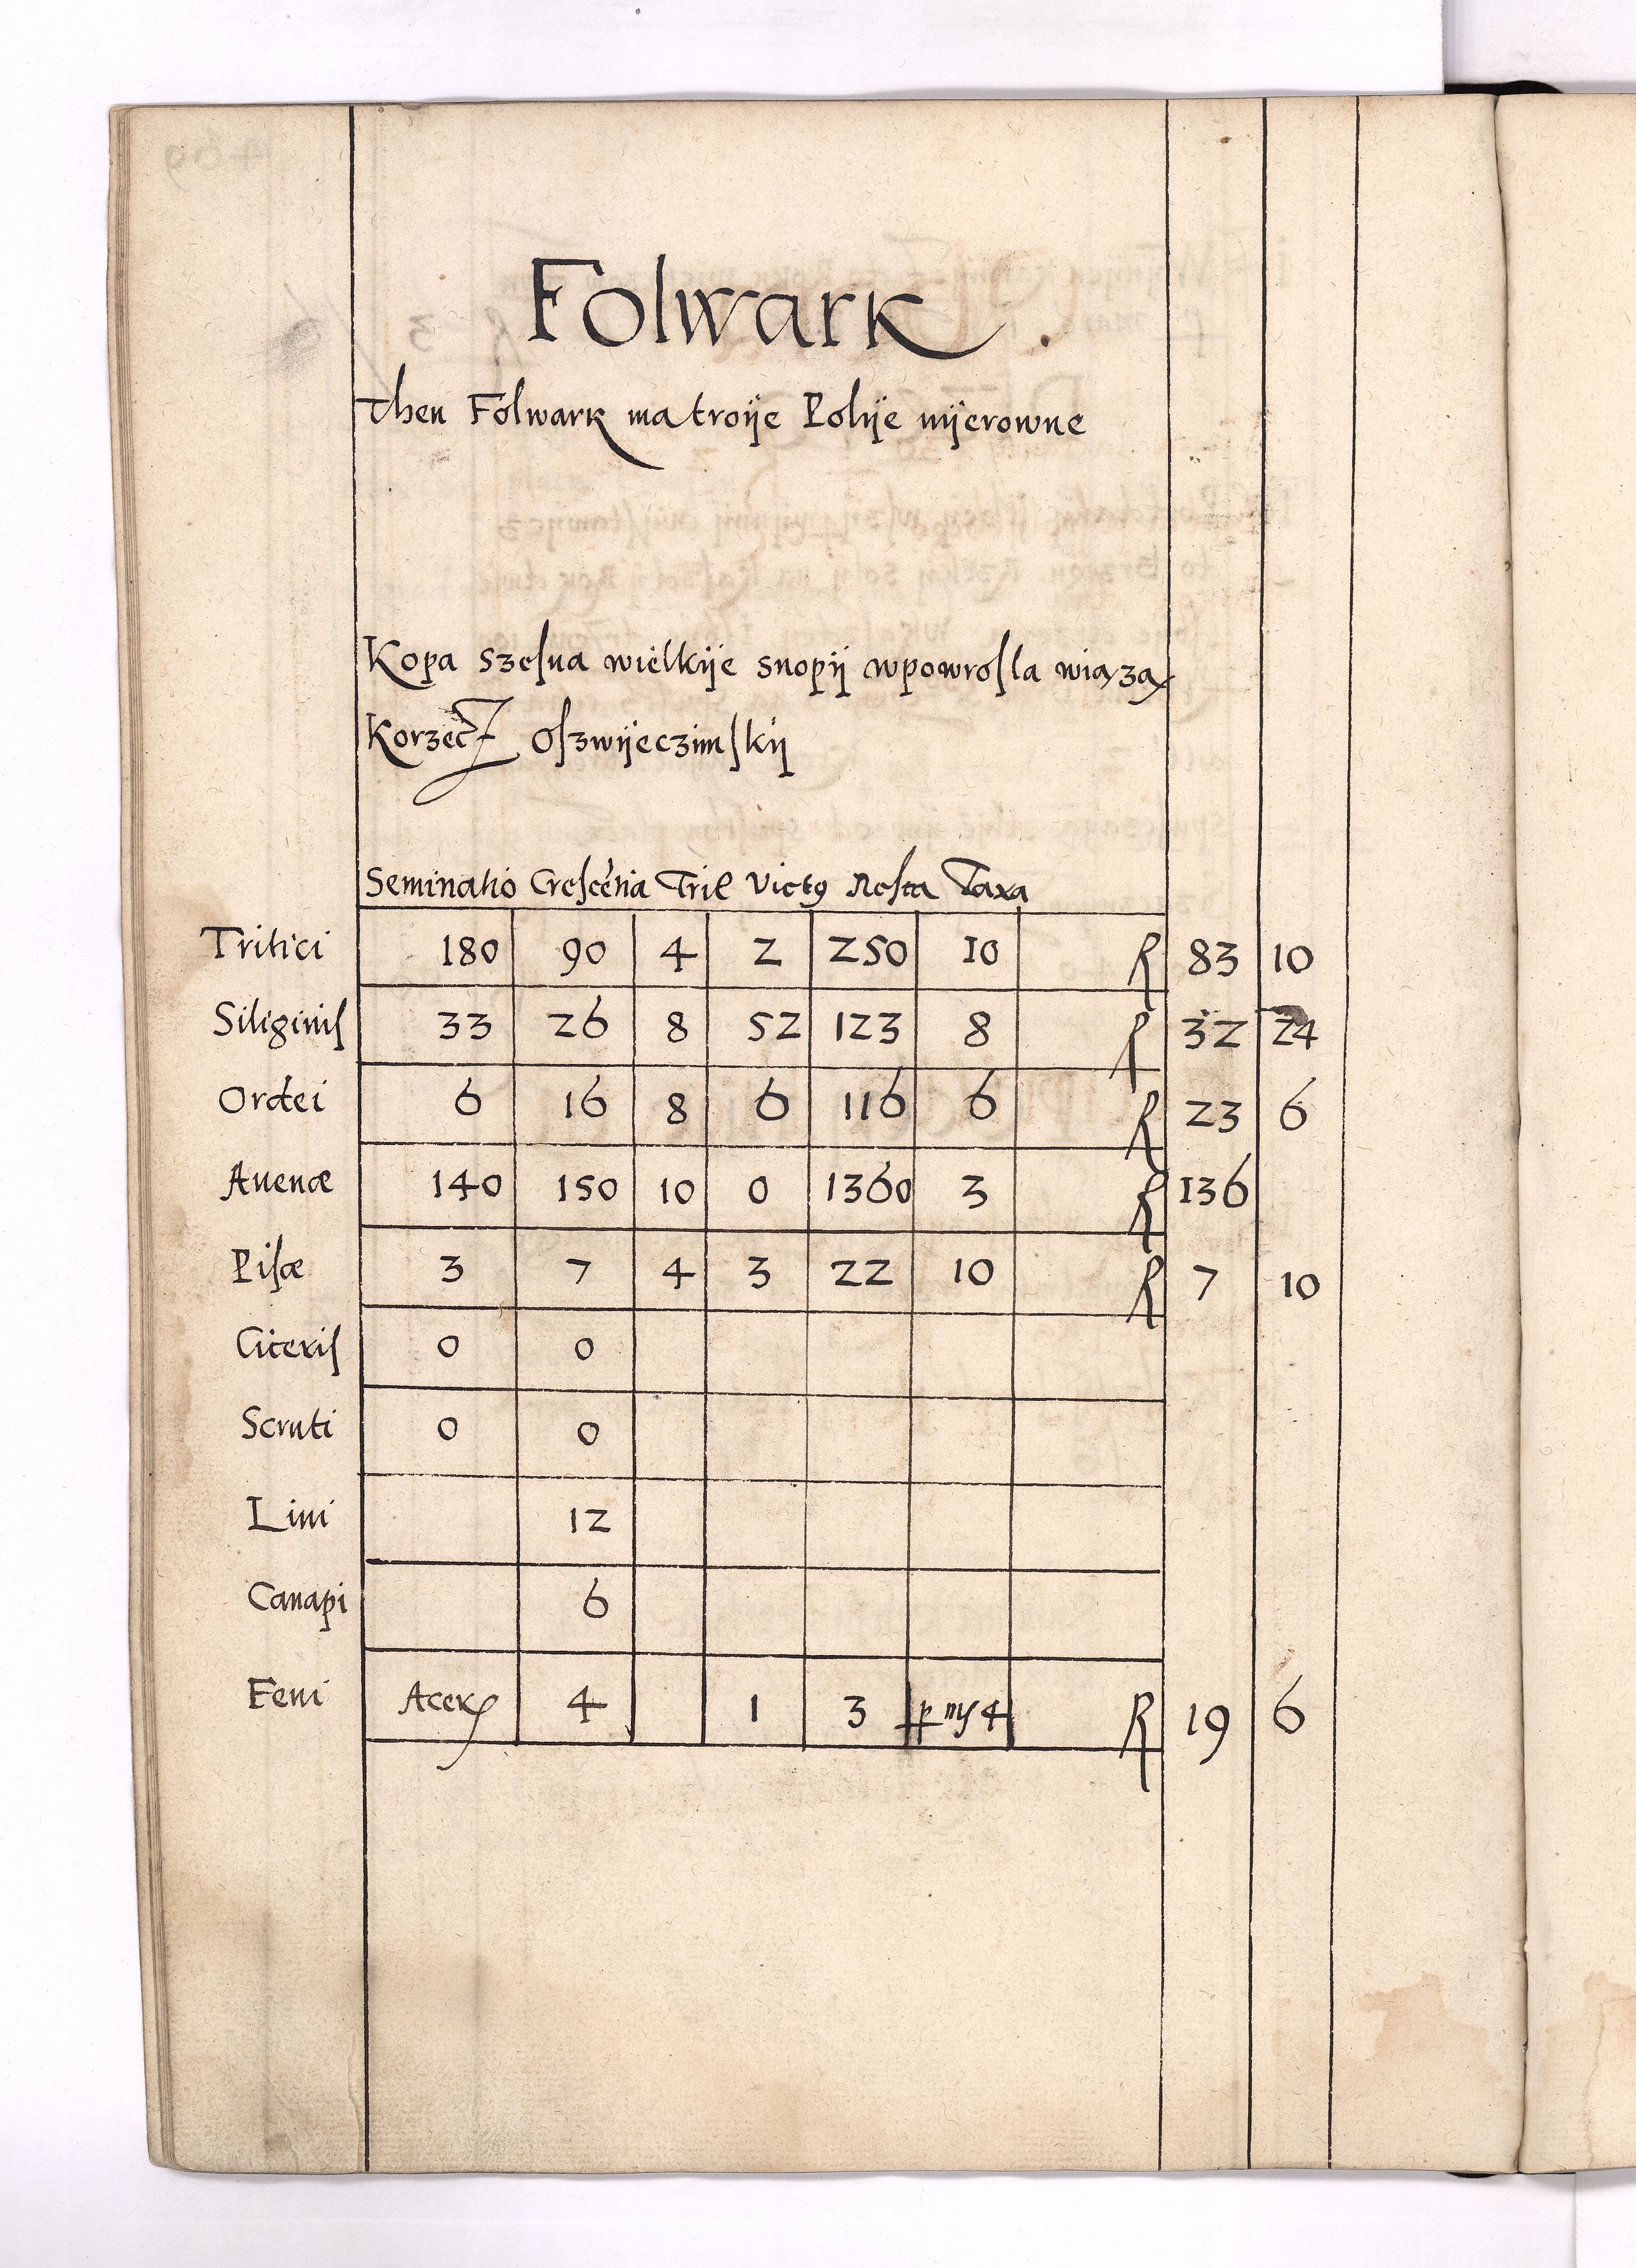 Folwark
Then Folwark ma troije Polije nijerowne
Kopa szesna wielkije snopij wpowrosla wiąząx
Korzecz Oszwijeczimskij
Seminatio Crescētia Tril Vict9 Resta Taxa
Tritici 180 90 4 2 250 10 R 83 10
Siliginis 33 26 8 52 123 8 R 32 24
Ordei 6 16 8 6 116 6 R 23 6
Auenæ 140 150 10 0 1360 3 R 136
Pisæ 3 7 4 3 22 10 R 7 10
Ciceris 0 0
Scruti 0 0
Lini 12
Canapi 6
Feni 4 1 3 4 R 19 6